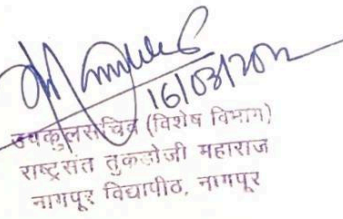 16/03/2012
उपकुलसचिव (विशेष विभाग)
राष्ट्रसंत तुकडोजी महाराज
नागपूर विद्यापीठ, नागपूर